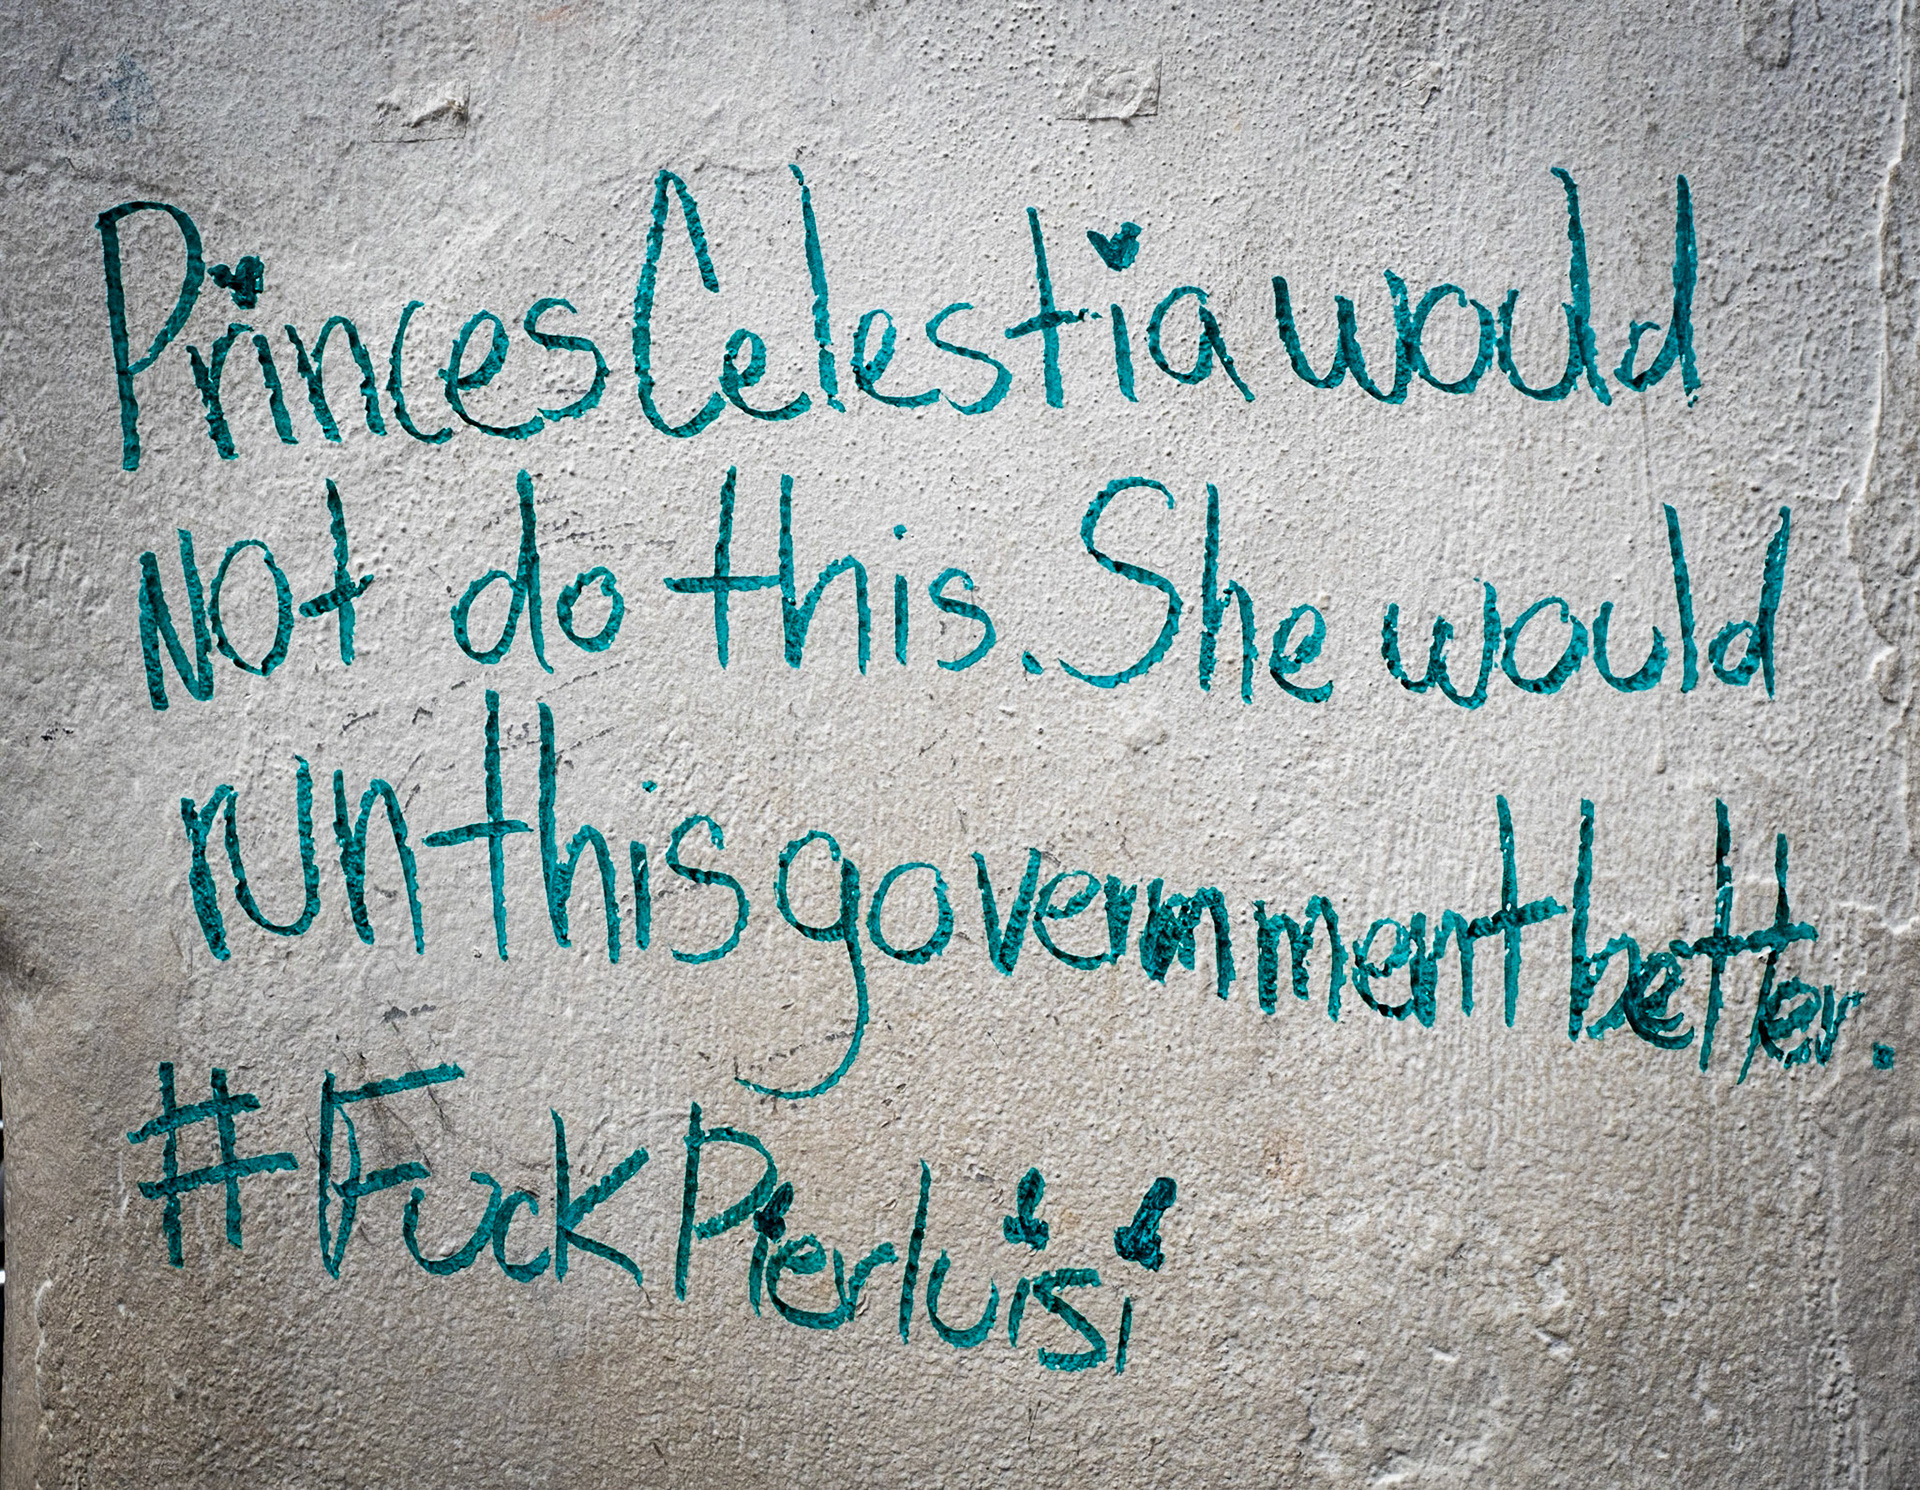 Princes Celestia would
not do this. She would
run this government better.
#FuckPierluisi